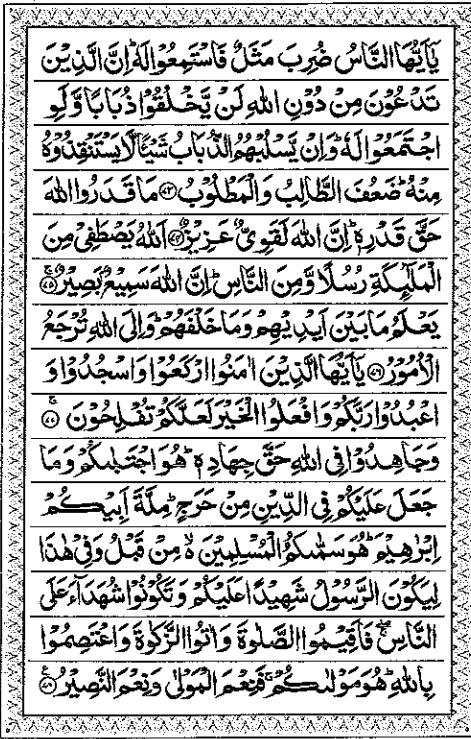 يٰۤاَيُّهَا النَّاسُ ضُرِبَ مَثَلٌ فَاسْتَمِعُوْا لَهٗ ؕ اِنَّ الَّذِيْنَ
تَدْعُوْنَ مِنْ دُوْنِ اللّٰهِ لَنْ يَّخْلُقُوْا ذُبَابًا وَّلَوِ
اجْتَمَعُوْا لَهٗ ؕ وَاِنْ يَّسْلُبْهُمُ الذُّبَابُ شَيْـًٔا لَّا يَسْتَنْقِذُوْهُ
مِنْهُ ؕ ضَعُفَ الطَّالِبُ وَالْمَطْلُوْبُ ﴿۷۳﴾ مَا قَدَرُوا اللّٰهَ
حَقَّ قَدْرِهٖ ؕ اِنَّ اللّٰهَ لَقَوِىٌّ عَزِيْزٌ ﴿۷۴﴾ اَللّٰهُ يَصْطَفِىْ مِنَ
الْمَلٰٓئِكَةِ رُسُلًا وَّمِنَ النَّاسِ ؕ اِنَّ اللّٰهَ سَمِيْعٌۢ بَصِيْرٌ ﴿۷۵﴾ۚ
يَعْلَمُ مَا بَيْنَ اَيْدِيْهِمْ وَمَا خَلْفَهُمْ ؕ وَاِلَى اللّٰهِ تُرْجَعُ
الْاُمُوْرُ ﴿۷۶﴾ يٰۤاَيُّهَا الَّذِيْنَ اٰمَنُوا ارْكَعُوْا وَاسْجُدُوْا وَ
اعْبُدُوْا رَبَّكُمْ وَافْعَلُوا الْخَيْرَ لَعَلَّكُمْ تُفْلِحُوْنَ ﴿۷۷﴾ۚ
وَجَاهِدُوْا فِى اللّٰهِ حَقَّ جِهَادِهٖ ؕ هُوَ اجْتَبٰٮكُمْ وَمَا
جَعَلَ عَلَيْكُمْ فِى الدِّيْنِ مِنْ حَرَجٍ ؕ مِلَّةَ اَبِيْكُمْ
اِبْرٰهِيْمَ ؕ هُوَ سَمّٰٮكُمُ الْمُسْلِمِيْنَ ۙ مِنْ قَبْلُ وَفِىْ هٰذَا
لِيَكُوْنَ الرَّسُوْلُ شَهِيْدًا عَلَيْكُمْ وَتَكُوْنُوْا شُهَدَآءَ عَلَى
النَّاسِ ۖۚ فَاَقِيْمُوا الصَّلٰوةَ وَاٰتُوا الزَّكٰوةَ وَاعْتَصِمُوْا
بِاللّٰهِ ؕ هُوَ مَوْلٰٮكُمْ ۚ فَنِعْمَ الْمَوْلٰى وَنِعْمَ النَّصِيْرُ ﴿۷۸﴾